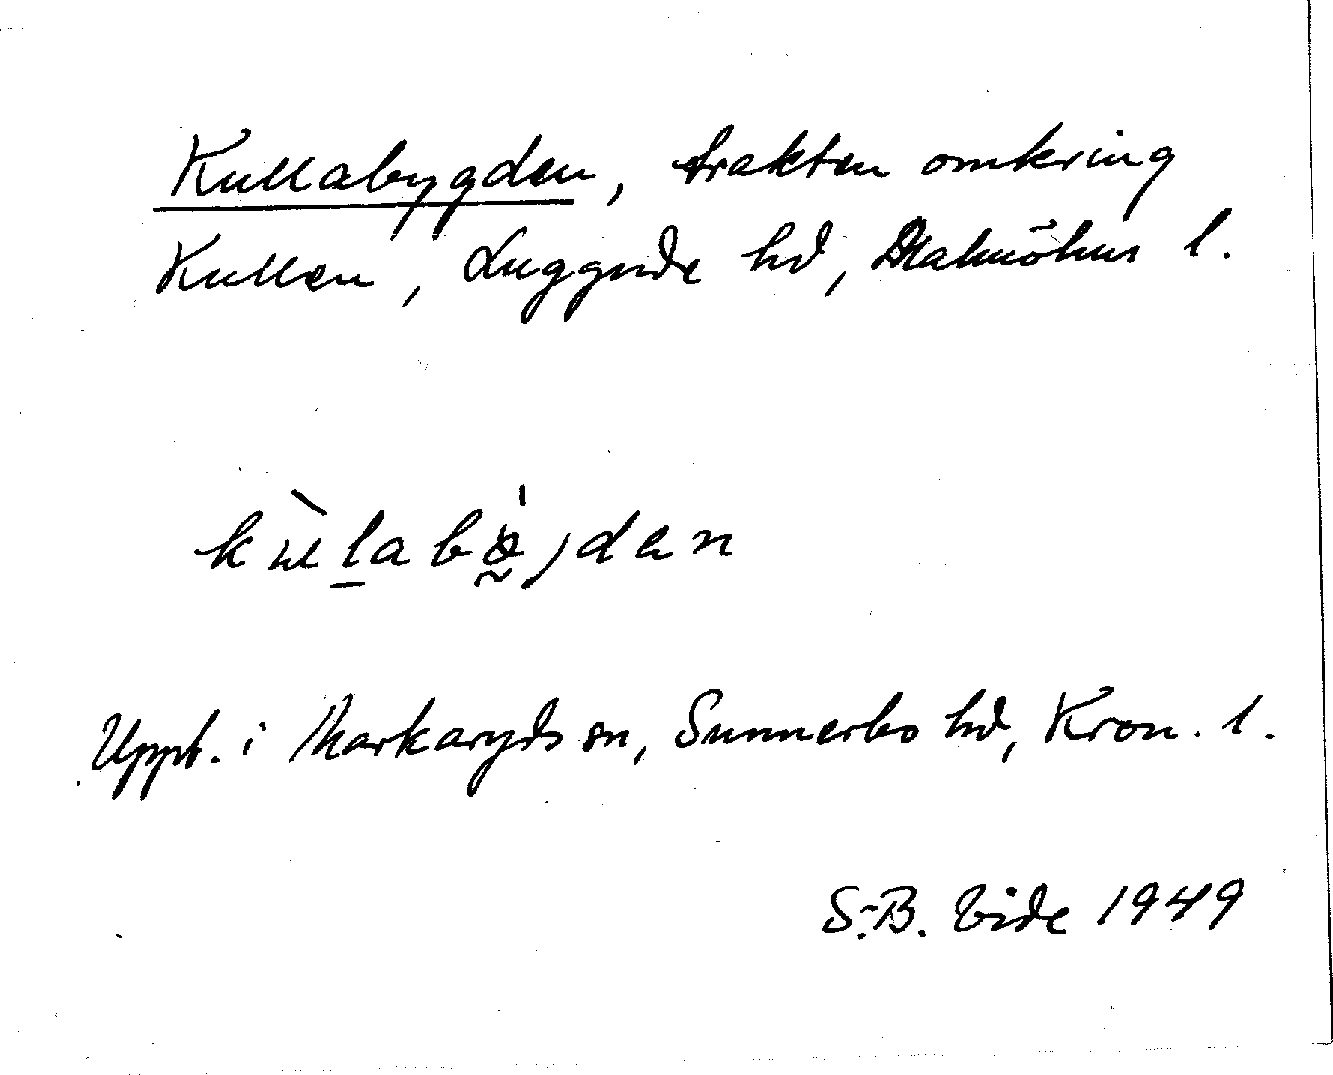 Kullabygden, trakten omkring
Kullen, Luggude hd, Malmöhus l.
kùlabø̀jdan
Uppt. i Markaryds sn, Sunnerbo hd, Kron. l.
S.-B. Vide 1949